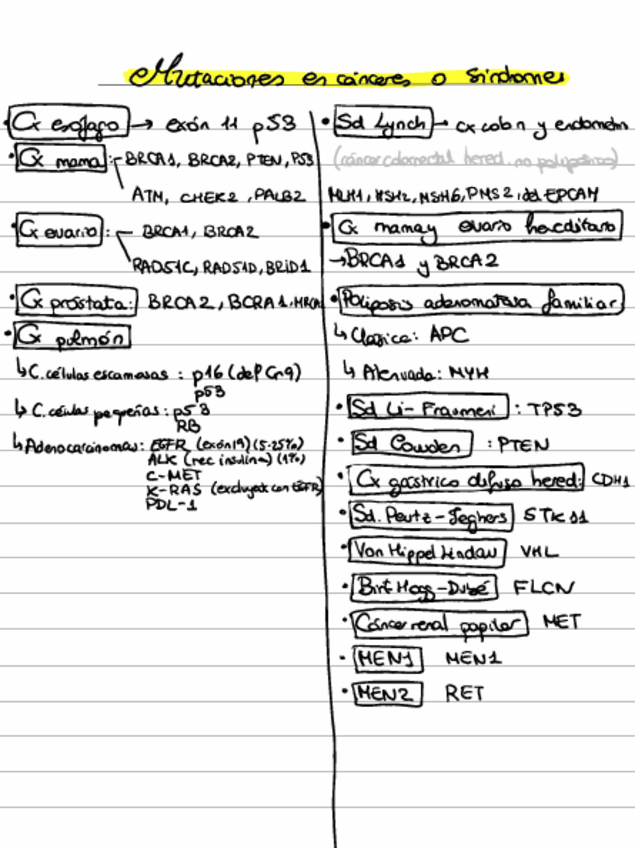 Mutaciones en cánceres o síndromes
• Cx esófago → exón 11 p53
• Cx mama: BRCA1, BRCA2, PTEN, P53
ATM, CHEK2, PALB2
• Cx ovario: BRCA1, BRCA2
RAD51C, RAD51D, BRiD1
• Cx próstata: BRCA2, BCRA1,
• Cx pulmón
↳ C. células escamosas: p16 (del Cr9)
p53
↳ C. células pequeñas: p53
RB
↳ Adenocarcinomas: EGFR (exón19) (5-25%)
ALK (rec insulina) (4%)
C-MET
K-RAS (excluyente con EGFR)
PDL-1
• Sd Lynch → cx colon y endometrio
(cáncer colorrectal hered. no poliposico)
MLH1, MSH2, MSH6, PMS2, del EPCAM
• Cx mama y ovario hereditario
→ BRCA1 y BRCA2
• Poliposis adenomatosa familiar
↳ Clásica: APC
↳ Atenuada: MYH
• Sd Li-Fraumeni: TP53
• Sd Cowden: PTEN
• Cx gástrico difuso hered: CDH1
• Sd. Peutz-Jeghers STK11
• Von Hippel Lindau VHL
• Birt Hogg-Dubé FLCN
• Cáncer renal papilar MET
• MEN1 MEN1
• MEN2 RET